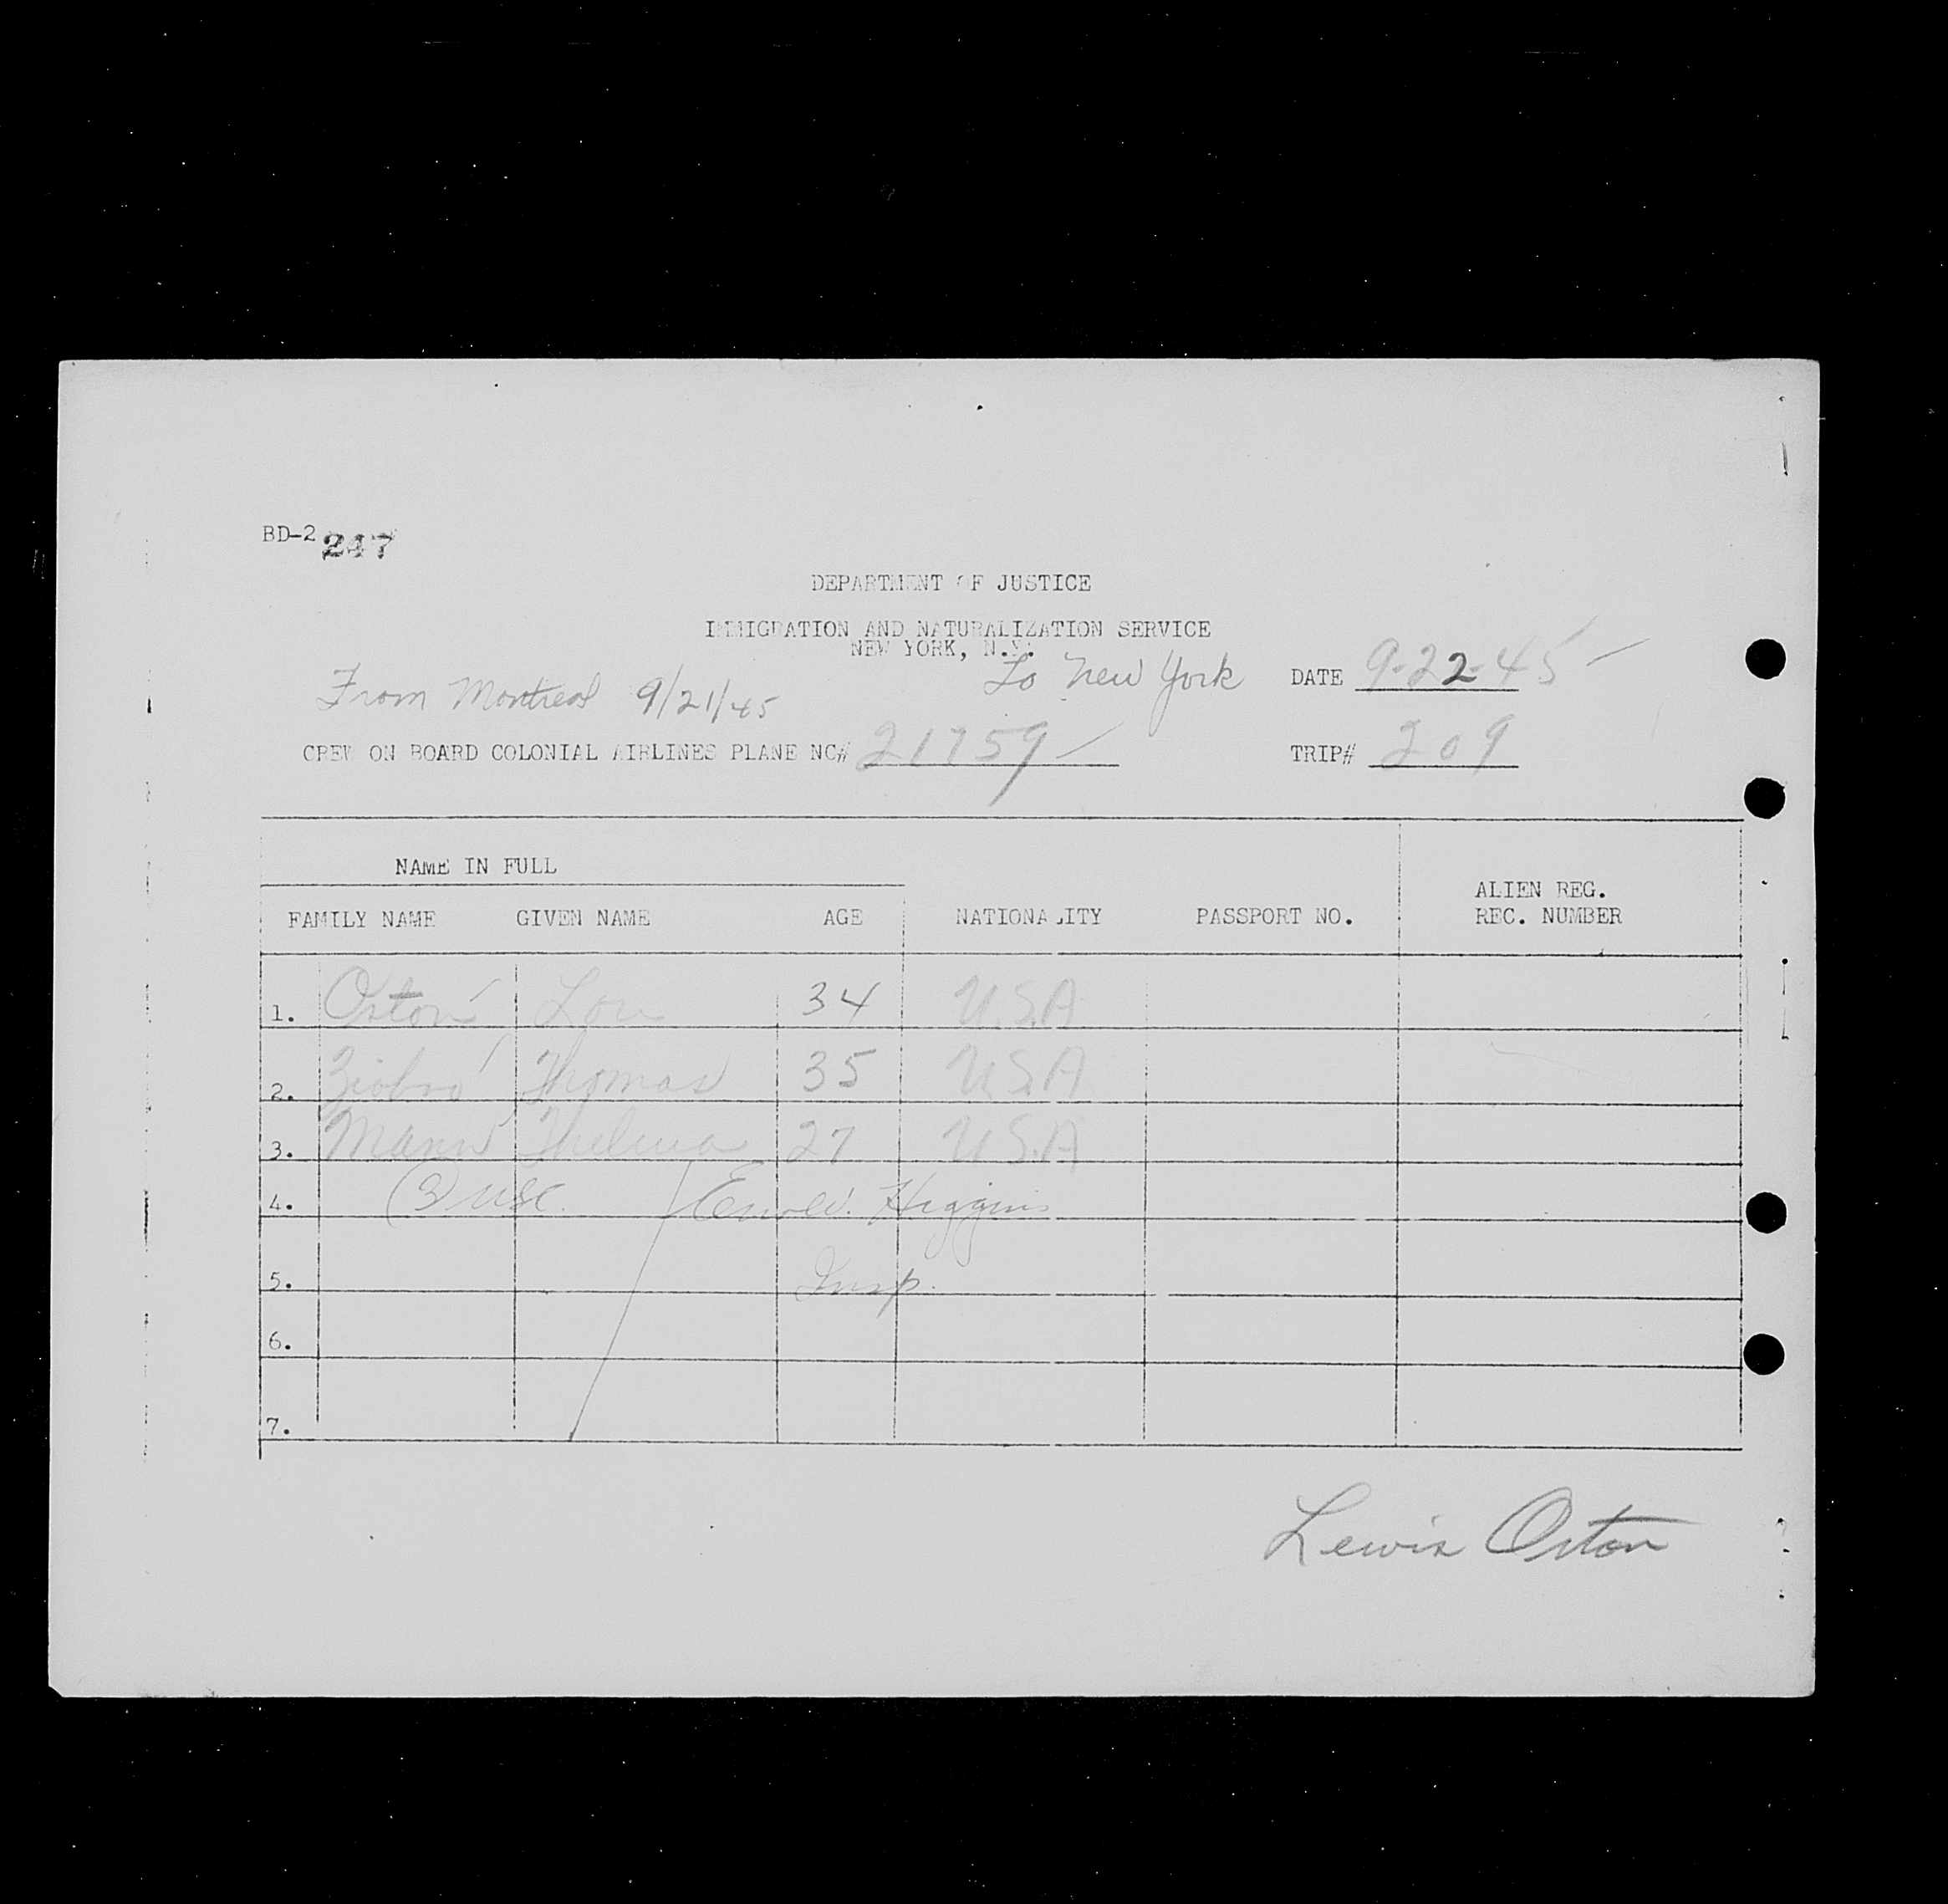 BD-2 247
DEPARTMENT OF JUSTICE
IMMIGRATION AND NATURALIZATION SERVICE
NEW YORK, N.Y.
From Montreal 9/21/45 To New York DATE 9-22-45
CREW ON BOARD COLONIAL AIRLINES PLANE NC# 21759 TRIP# 209
NAME IN FULL
ALIEN REG.
FAMILY NAME GIVEN NAME AGE NATIONALITY PASSPORT NO. REC. NUMBER
1. Orton Lou 34 U.S.A
2. Ziobro Thomas 35 U.S.A
3. Mann Thelma 27 U.S.A
4. (3) USC. Higgins
5. Insp.
6.
7.
Lewis Orton